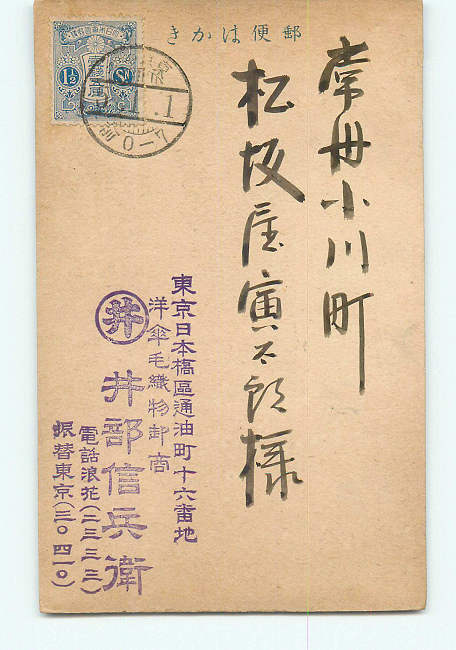 郵便はかき
常州小川町
松坂屋寅太郎様
東京日本橋區通油町十六番地
洋傘毛織物卸商
井
井部信兵衛
電話浪花(二三三三)
振替東京(三〇四一〇)
1½ Sn
前0-7